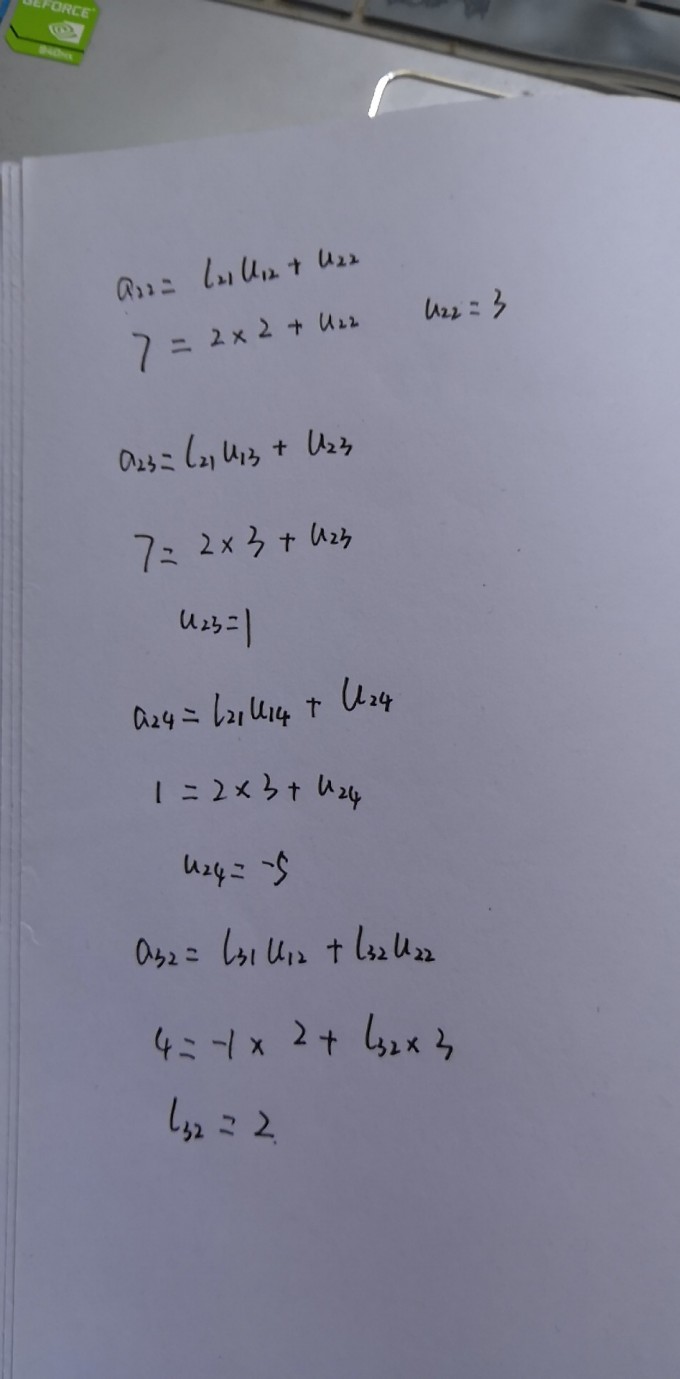 GEFORCE
840MX
a₂₂ = l₂₁ u₁₂ + u₂₂
7 = 2 × 2 + u₂₂ u₂₂ = 3
a₂₃ = l₂₁ u₁₃ + u₂₃
7 = 2 × 3 + u₂₃
u₂₃ = 1
a₂₄ = l₂₁ u₁₄ + u₂₄
1 = 2 × 3 + u₂₄
u₂₄ = -5
a₃₂ = l₃₁ u₁₂ + l₃₂ u₂₂
4 = -1 × 2 + l₃₂ × 3
l₃₂ = 2.